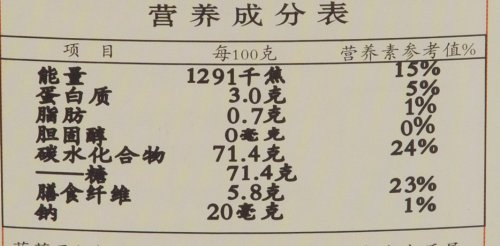 营养成分表
项目 每100克 营养素参考值%
能量 1291千焦 15%
蛋白质 3.0克 5%
脂肪 0.7克 1%
胆固醇 0毫克 0%
碳水化合物 71.4克 24%
——糖 71.4克
膳食纤维 5.8克 23%
钠 20毫克 1%